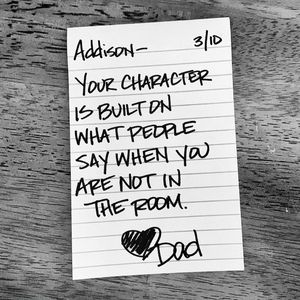 Addison— 3/10
YOUR CHARACTER
IS BUILT ON
WHAT PEOPLE
SAY WHEN YOU
ARE NOT IN
THE ROOM.
Dad